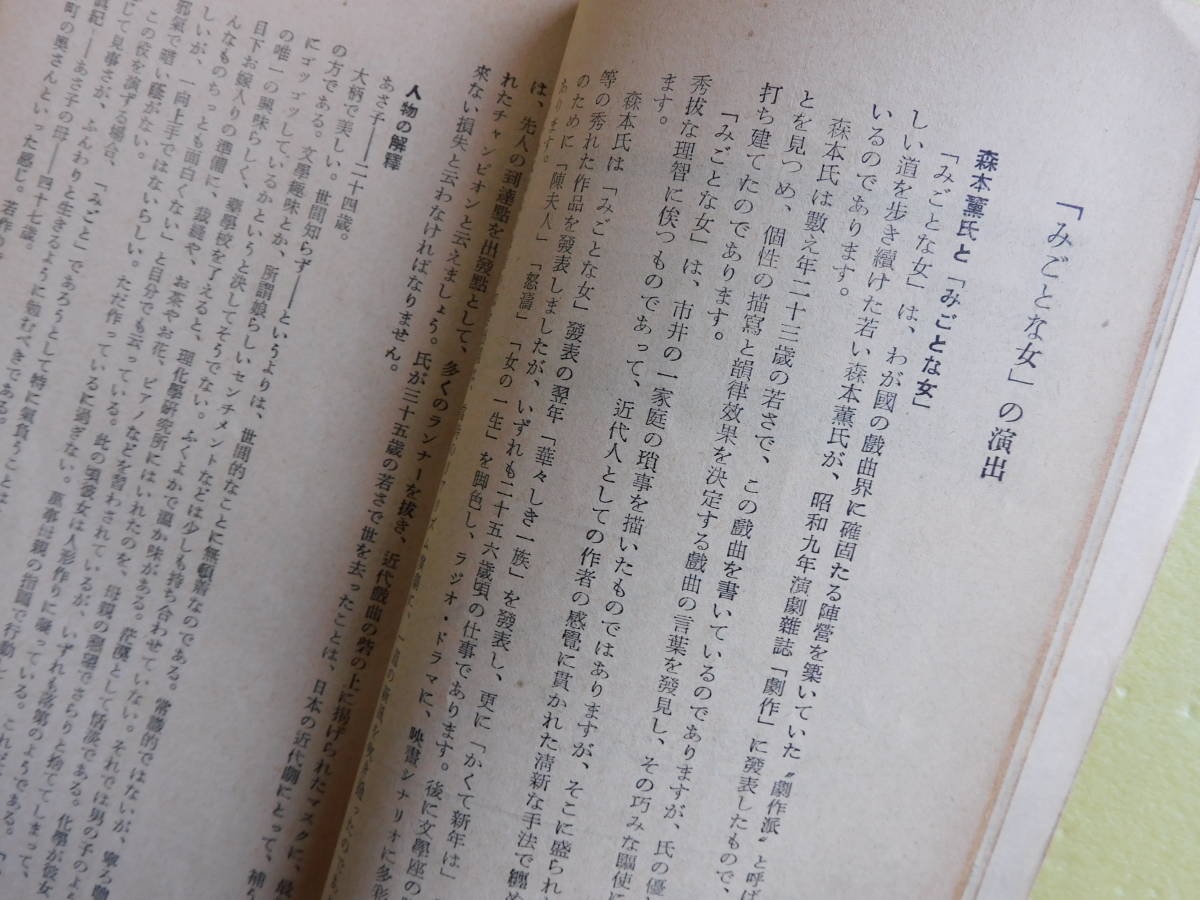 「みごとな女」の演出
森本薫氏と「みごとな女」
「みごとな女」は、わが國の戯曲界に確固たる陣營を築いていた〝劇作派〟と呼ば
しい道を歩き續けた若い森本薫氏が、昭和九年演劇雜誌「劇作」に發表したもので、
いるのであります。
森本氏は數え年二十三歳の若さで、この戯曲を書いているのでありますが、氏の優
とを見つめ、個性の描寫と韻律效果を決定する戯曲の言葉を發見し、その巧みな驅使に
打ち建てたのであります。
「みごとな女」は、市井の一家庭の瑣事を描いたものではありますが、そこに盛られ
秀拔な理智に俟つものであって、近代人としての作者の感覺に貫かれた清新な手法で纒め
ます。
森本氏は「みごとな女」發表の翌年「華々しき一族」を發表し、更に「かくて新年は」
等の秀れた作品を發表しましたが、いずれも二十五六歳頃の仕事であります。後に文學座の
のために「陳夫人」「怒濤」「女の一生」を脚色し、ラジオ・ドラマに、映畫シナリオに多彩
あります。
は、先人の到達點を出發點として、多くのランナーを拔き、近代戯曲の祭の上に揭げられたマスクに、最
れたチャンピオンと云えましょう。氏が三十五歳の若さで世を去ったことは、日本の近代劇にとって、補う
來ない損失と云わなければなりません。
人物の解釋
あさ子――二十四歳。
大柄で美しい。世間知らず――というよりは、世間的なことに無頓着なのである。常識的ではないが、寧ろ聰
の方である。文學趣味とか、所謂娘らしいセンチメントなどは少しも持ち合わせていない。それでは男の子のよう
にゴツゴツしているかというと決してそうでない。ふくよかで溫か味がある。茫漠として恬淡である。化學が彼女
の唯一の興味らしく、藥學校を了えると、理化學研究所にはいれたのを、母親の懇望でさらりと捨ててしまって、
目下お嫁入りの準備に、裁縫や、お茶やお花、ピアノなどを習わされているが、いずれも落第のようである。「
んなものちっとも面白くない」と自分でも云っている。此の頃彼女は人形作りに凝っている。これ
しいが、一向上手ではないらしい。ただ作っているに過ぎない。萬事母親の指圖で行動して
邪氣で暗い蔭がない。
この役を演ずる場合、「みごと」であろうとして特に氣負うことは
じて見事さが、ふんわりと生きるように勉むべきである。
眞紀――あさ子の母――四十七歳。
町の奧さんといった感じ。若作り